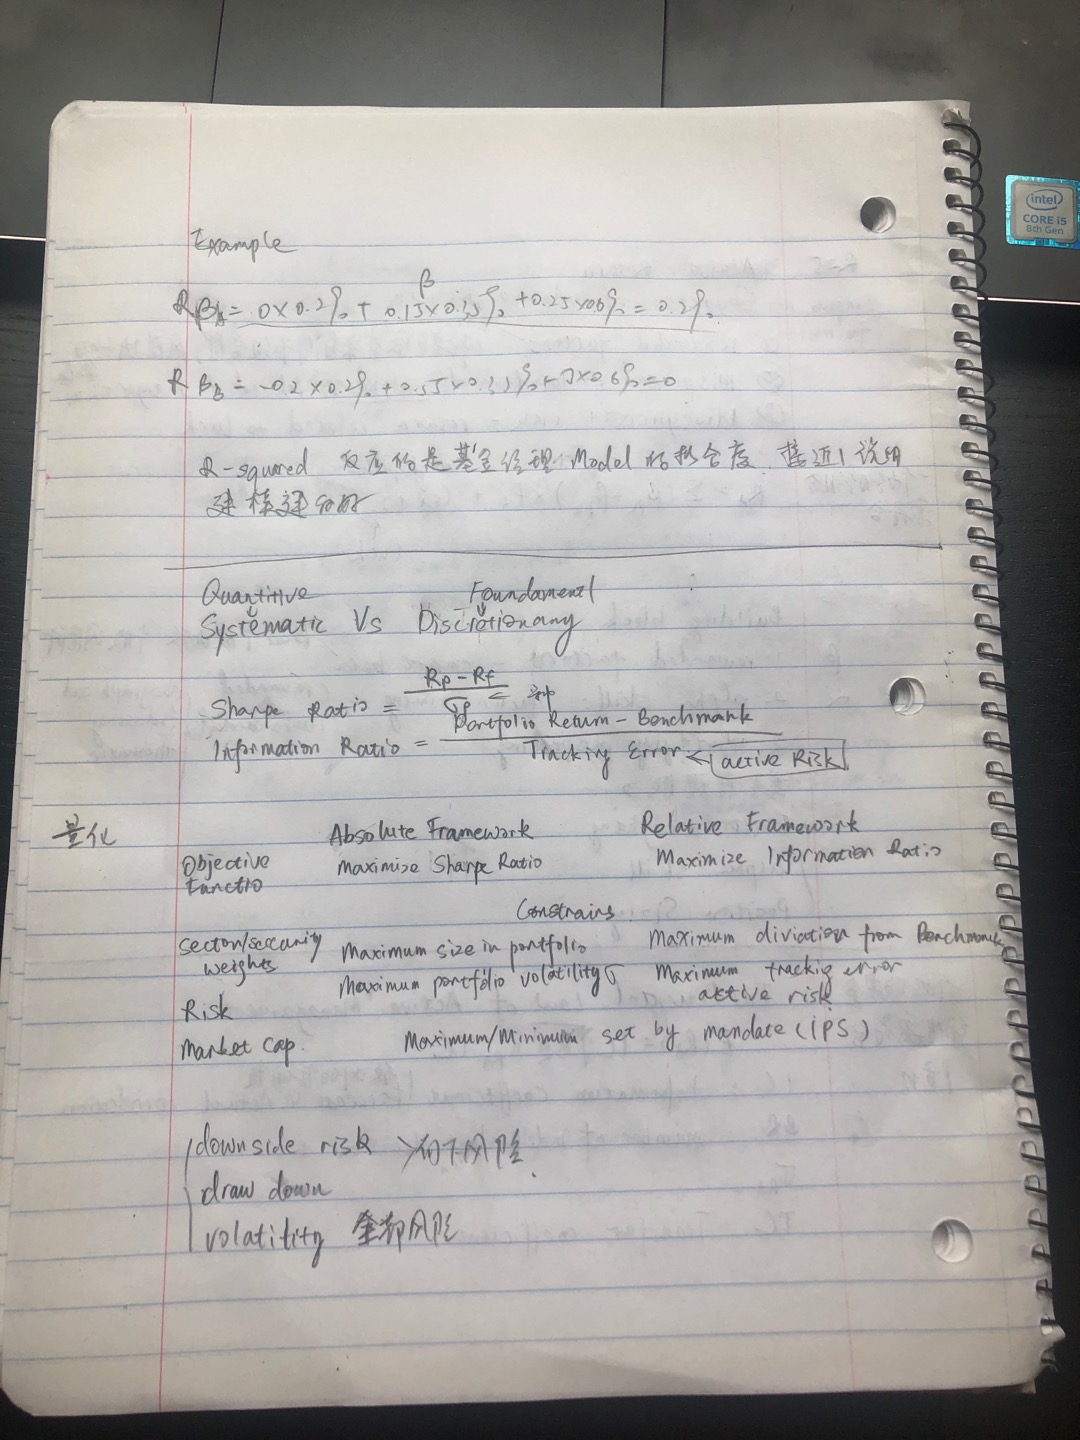 intel
CORE i5
8th Gen
Example
β
R βA = 0×0.2% + 0.15×0.35% +0.25×0.6% = 0.2%
R βB = -0.2×0.2% +0.55×0.35% + ×0.6%=0
R-squared 反应的是基金经理 Model 的拟合度, 接近1说明
建模 好
Quantitive Foundamental
Systematic Vs Discrationary
Sharpe Ratio = Rp-Rf
σp
Information Ratio = Portfolio Return - Benchmark
Tracking Error ← active Risk
量化 Absolute Framework Relative Framework
Objective Functio Maximize Sharpe Ratio Maximize Information Ratio
Constrains
Sector/security weights Maximum size in portfolio Maximum diviation from Benchmark
Risk Maximum portfolio volatility σ Maximum trackig error
aktive risk
Market Cap. Maximum/Minimum set by mandate (IPS)
downside risk 向下风险
draw down
volatitity 全部风险